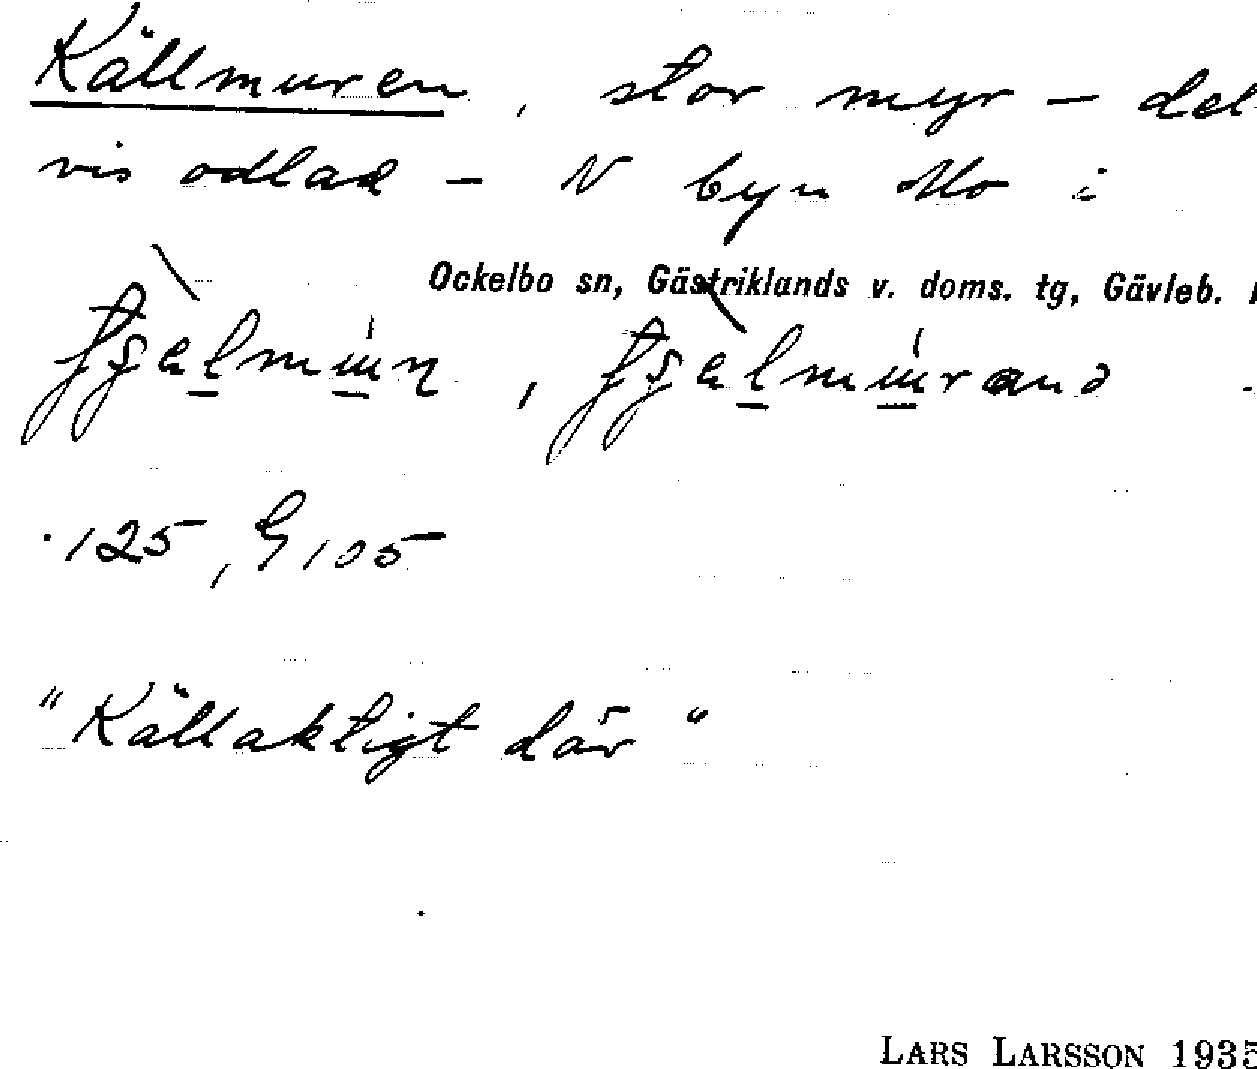 Källmuren, stor myr – del-
vis odlad – N byn Mo i
Ockelbo sn, Gästriklands v. doms. tg, Gävleb.
125, G 105
"Källaktigt där"
LARS LARSSON 1935